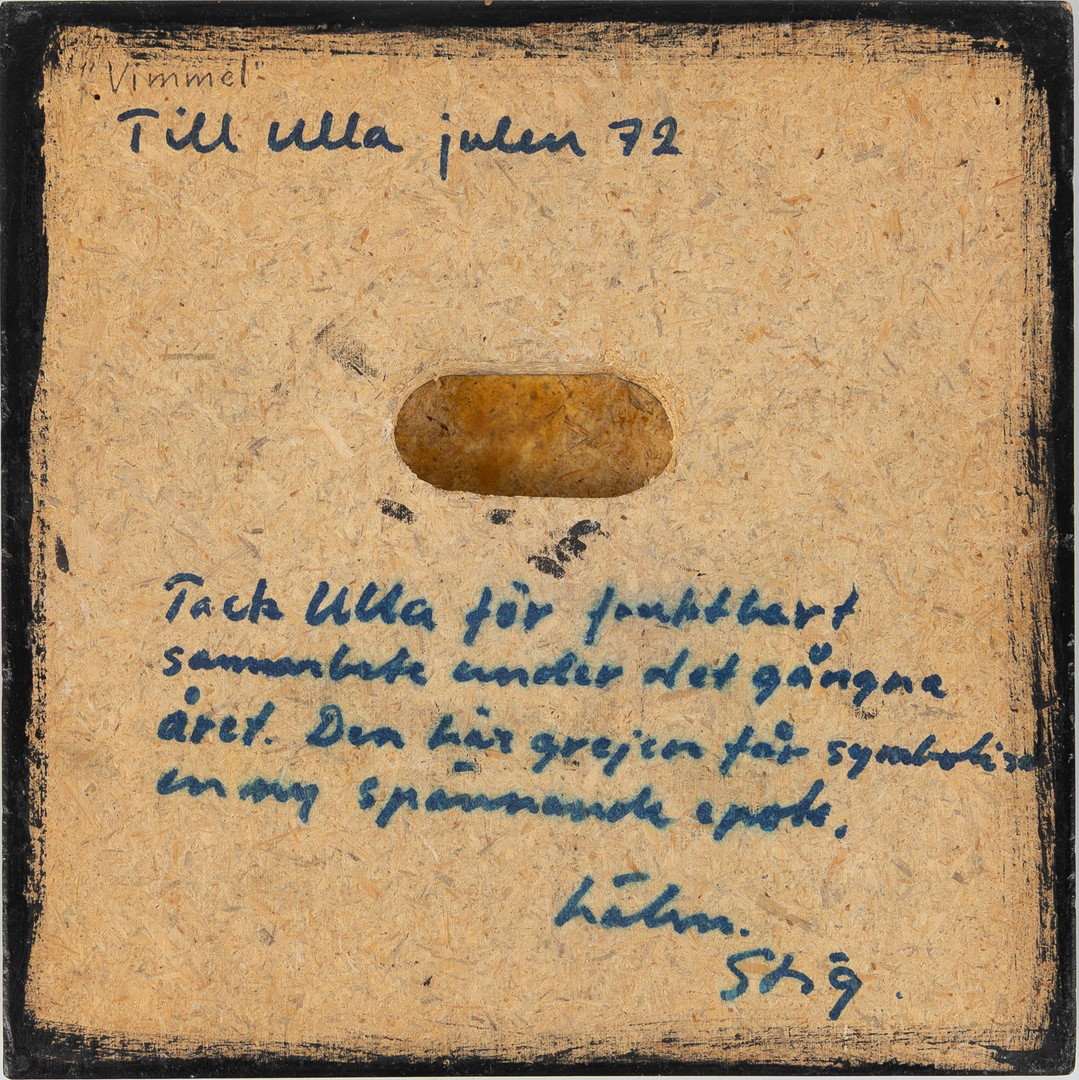 "Vimmel"
Till Ulla julen 72
Tack Ulla för fruktbart
samarbete under det gångna
året. Den här grejen får symbolisera
en ny spännande epok.
Hälsn.
Stig.